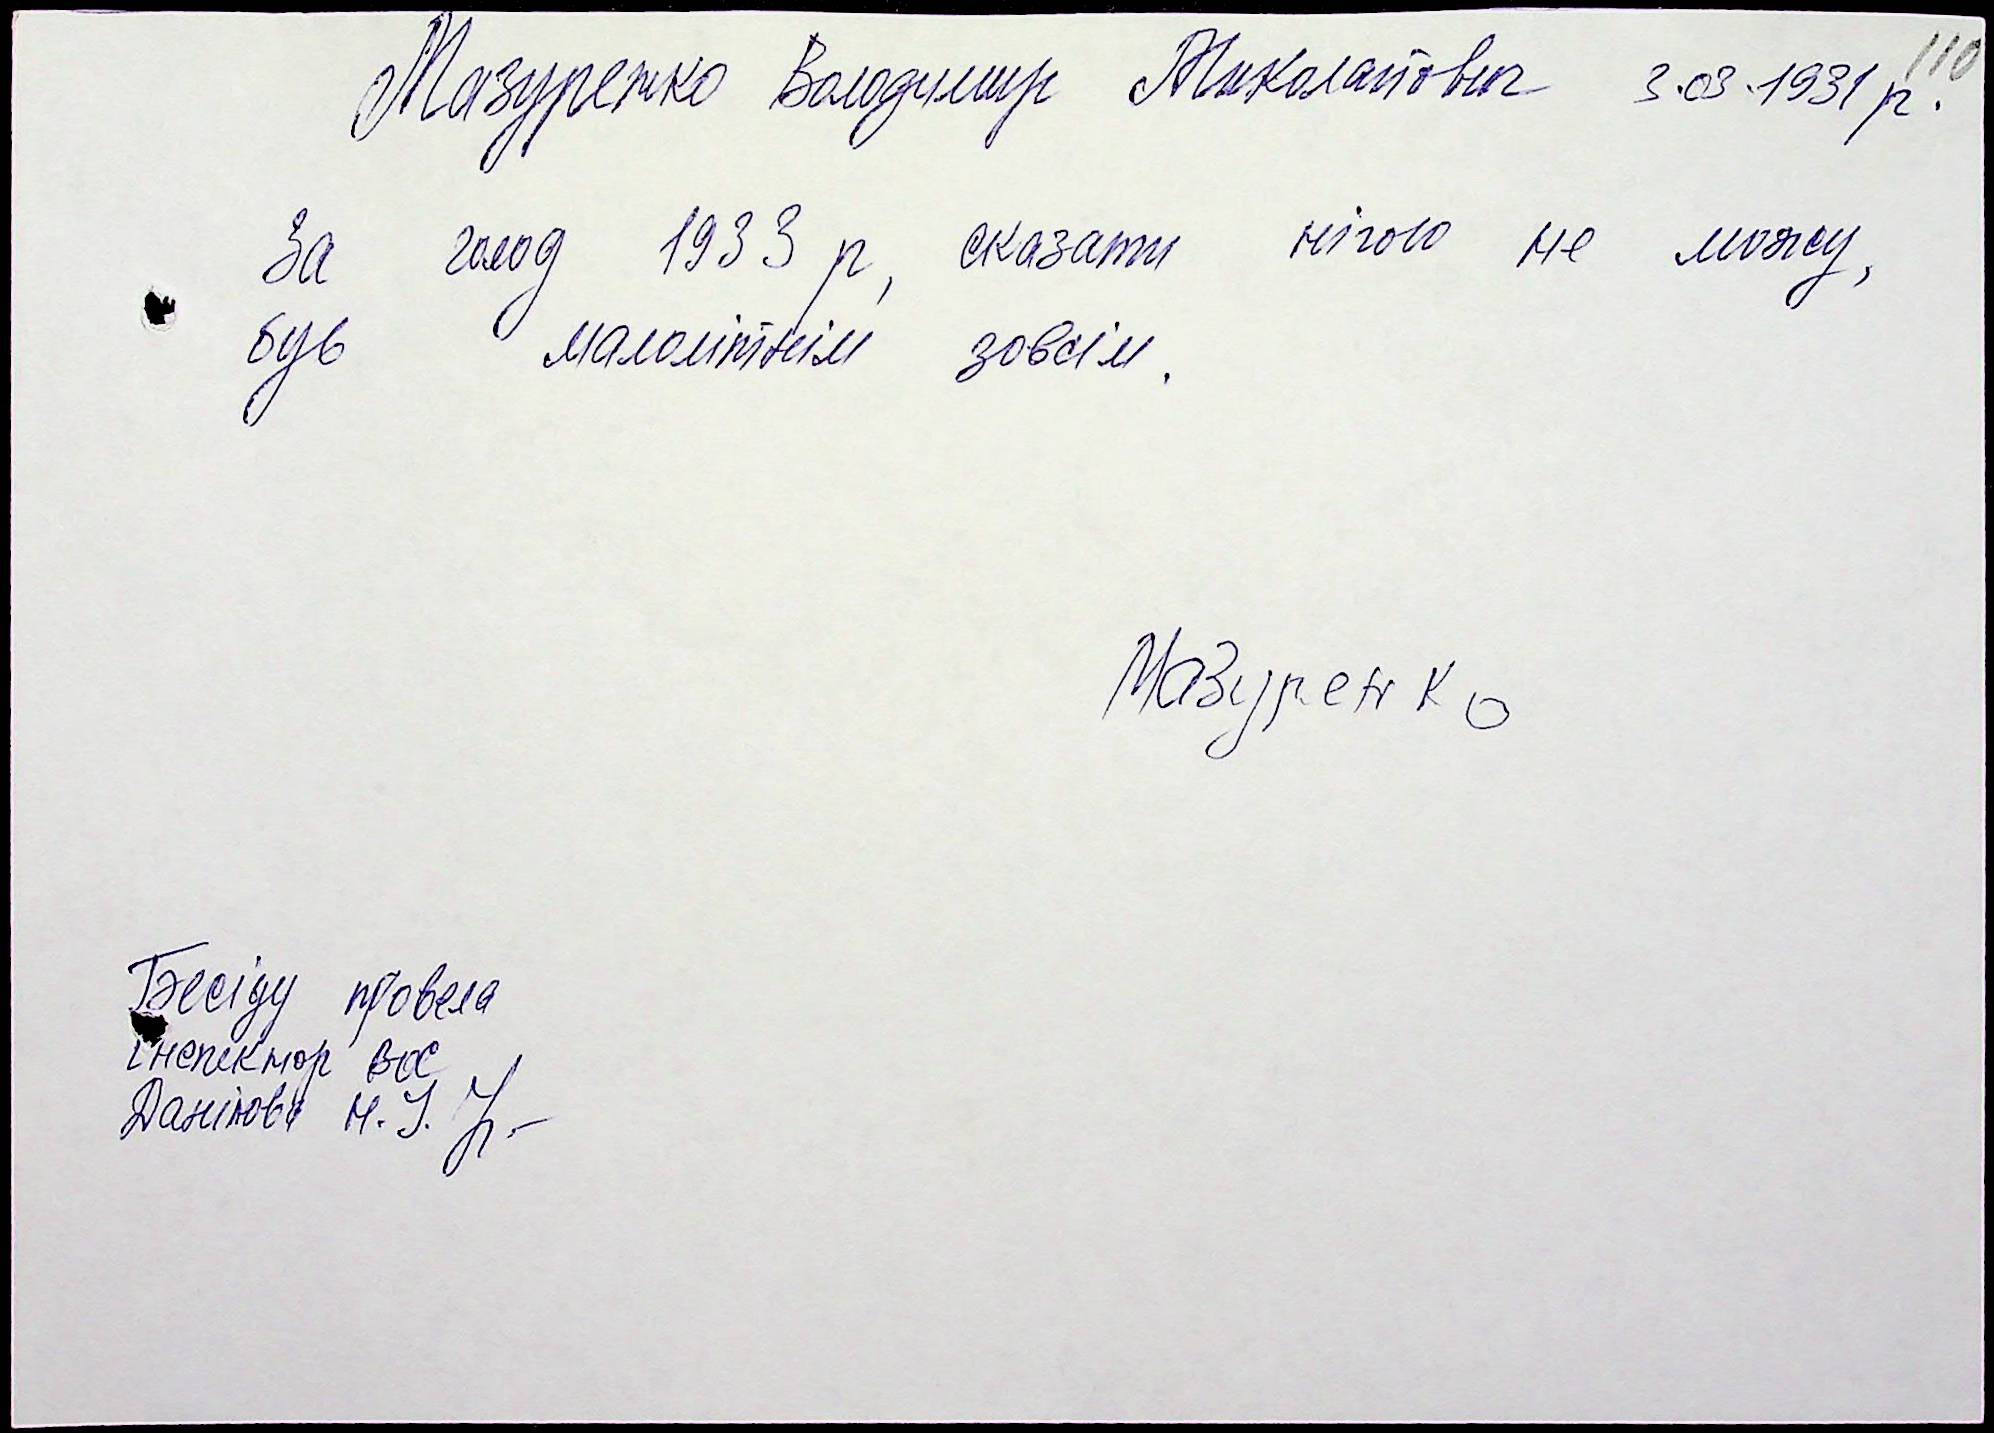 110
Мазуренко Володимир Миколайович 3.03.1931 р.
За голод 1933 р, сказати нічого не можу,
був малолітнім зовсім.
Мазуренко
Бесіду провела
інспектор ВОС
Данілова Н.І.